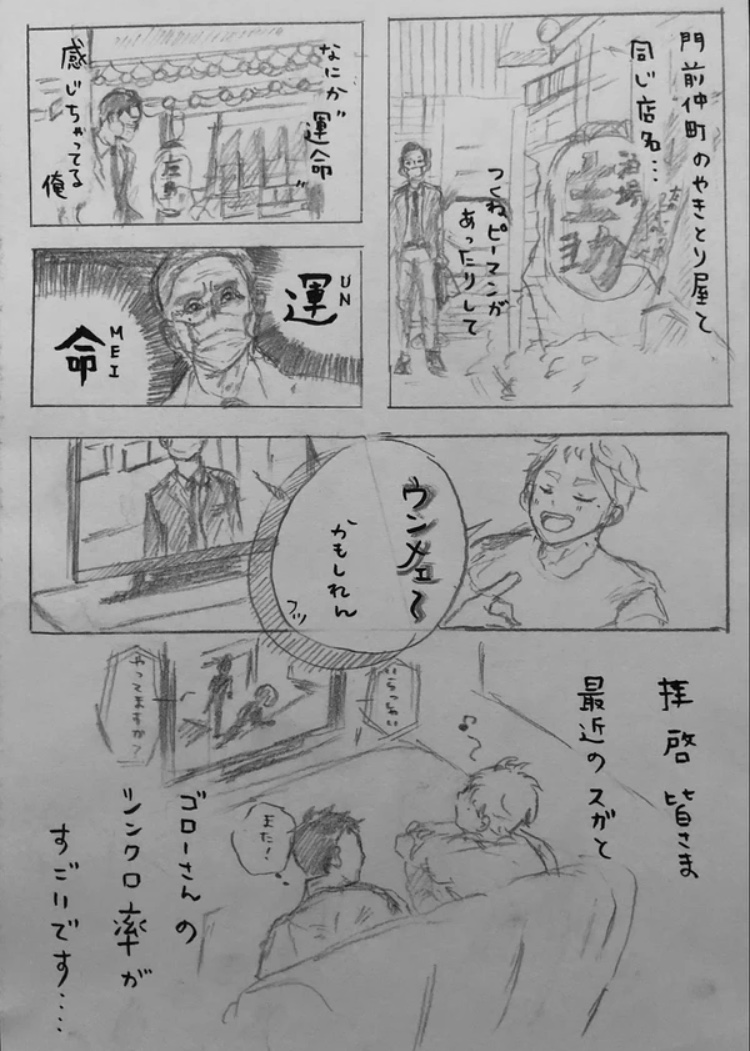 門前仲町のやきとり屋と
同じ店名…
酒場
庄助
つくねピーマンが
あったりして
なにか〝運命〟
感じちゃってる
俺
運
UN
命
MEI
ウンメェ〜
かもしれん
フッ
拝啓 皆さま
最近のスガと
いらっしゃい
やってますか?
また!
ゴローさんの
シンクロ率が
すごいです....